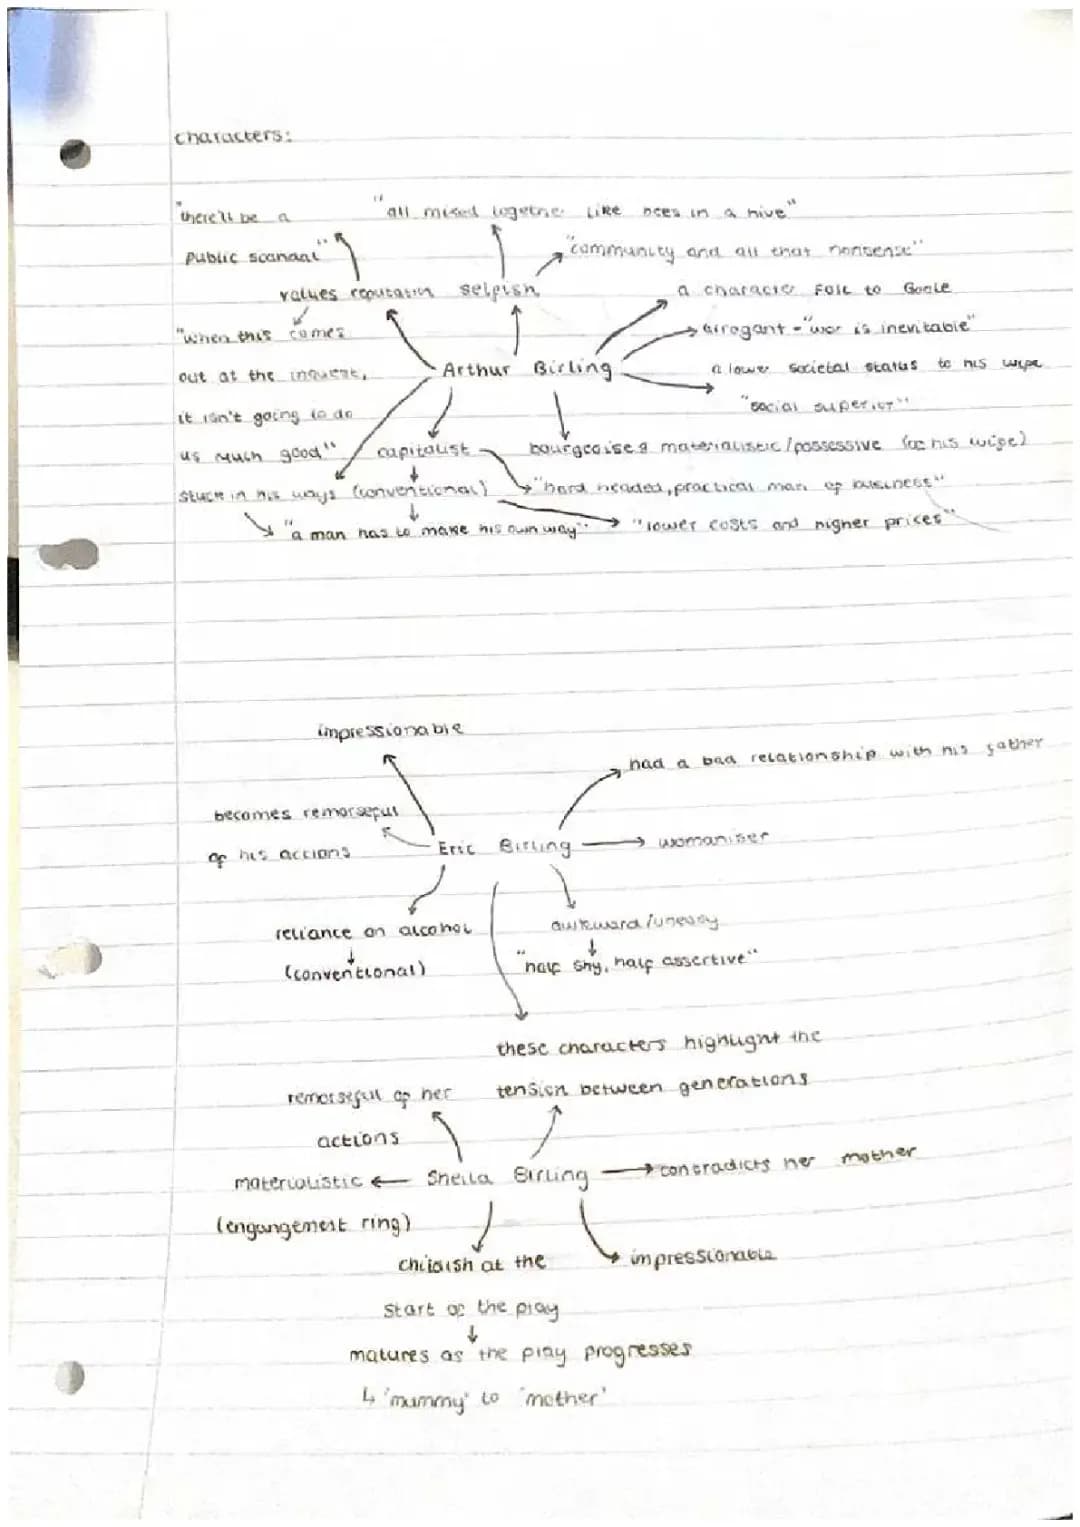 characters:
"there'll be a "all mixed together like bees in a hive"
public scandal" "community and all that nonsense"
values reputation selfish a character foil to Goole
"when this comes arrogant - "war is inevitable"
out at the inquest, Arthur Birling a lower societal status to his wife
it isn't going to do "social superior"
us much good" capitalist bourgeoise & materialistic/possessive (of his wife)
stuck in his ways (conventional) "hard headed, practical man of business"
"a man has to make his own way" "lower costs and higher prices"
impressionable
had a bad relationship with his father
becomes remorseful
of his actions Eric Birling womaniser
reliance on alcohol awkward/uneasy
(conventional) "half shy, half assertive"
these characters highlight the
remorseful of her tension between generations
actions
materialistic Sheila Birling contradicts her mother
(engangement ring)
childish at the impressionable
start of the play
matures as the play progresses
'mummy' to 'mother'